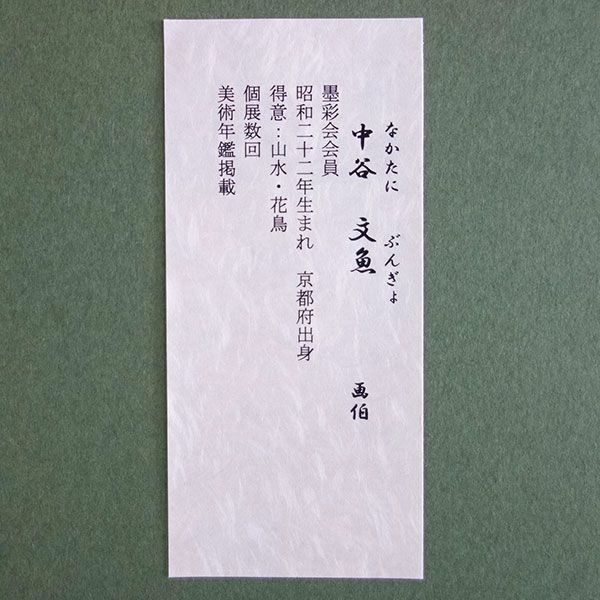 なかたに ぶんぎょ
中谷 文魚 画伯
墨彩会会員
昭和二十二年生まれ 京都府出身
得意：山水・花鳥
個展数回
美術年鑑掲載